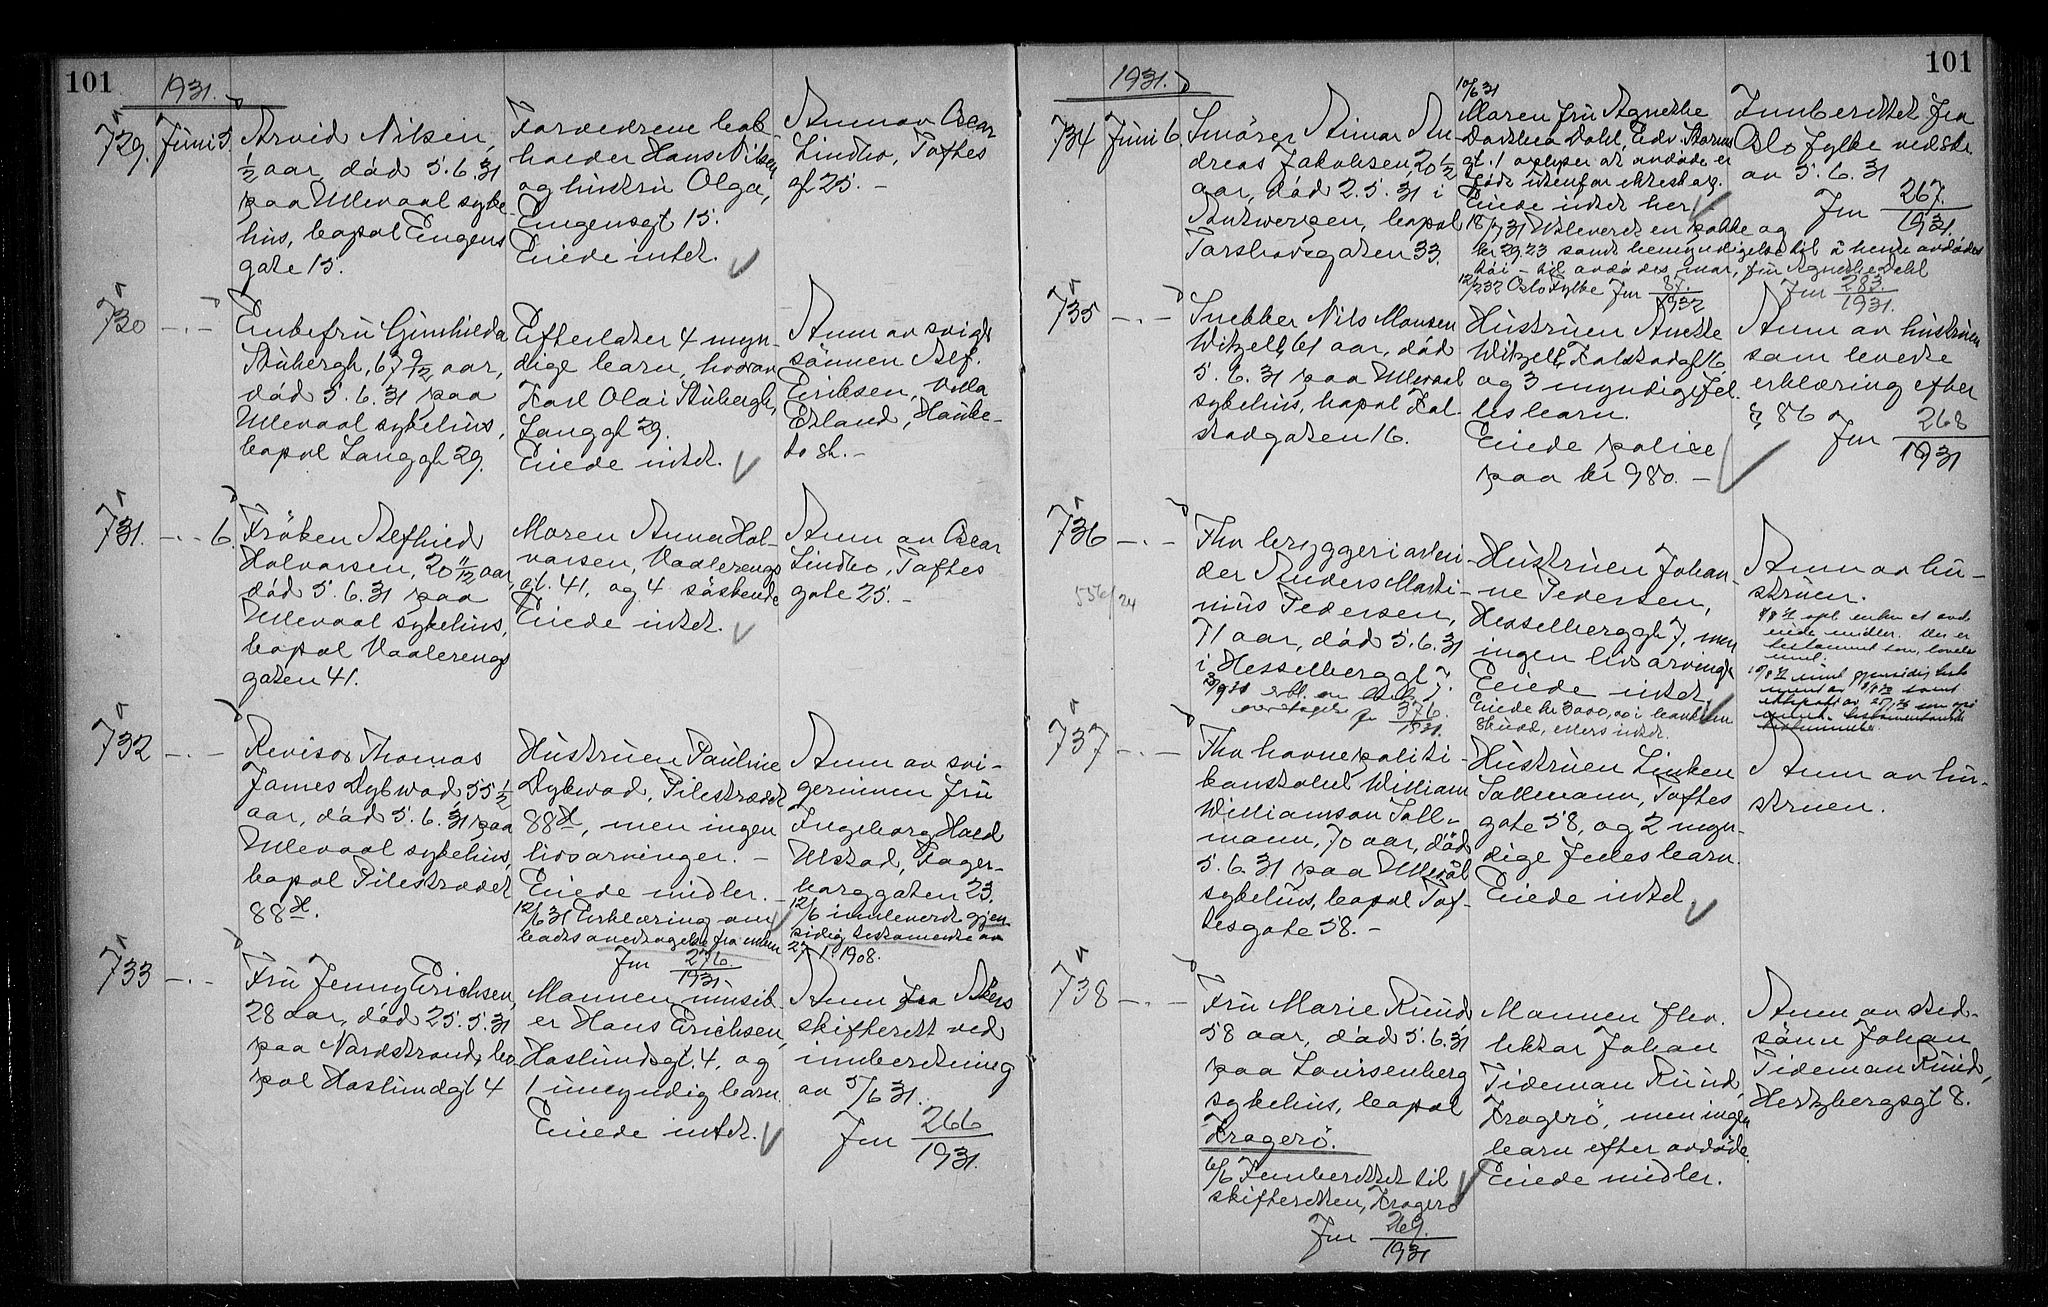 101
1931.
729. Juni 5.
Arvid Nilsen,
1/2 aar, død 5.6.31
paa Ullevaal syke-
hus, bopæl Eugens
gate 15.
Forældrene
Hans Nilsen
og hustru Olga,
Eugensgt 15.
Eiede intet.
Anm av Oscar
Lindbo, Toftes
gt 25. -
730 -.-
Enkefru Gunhilda
Stubergh, 67 9/12 aar,
død 5.6.31 paa
Ullevaal sykehus,
bopæl Langgt 29.
Efterlater 4 myn-
dige barn, hvorav
Karl Olai Stubergh,
Langgt 29.
Eiede intet.
Anm av sviger
sønnen Alf.
Eriksen, Villa
Erland, Hauke-
to st. -
731. -.- 6.
Frøken Alfhild
Halvorsen, 20 11/12 aar,
død 5.6.31 paa
Ullevaal sykehus,
bopæl Vaalerengs
gaten 41.
Moren Anna Hal-
vorsen, Vaalerengs
gt. 41, og 4 søskende
Eiede intet.
Anm av Oscar
Lindbo, Toftes
gate 25. -
732 -.-
Revisor Thomas
James Dybwad, 55 1/2
aar, død 5.6.31 paa
Ullevaal sykehus,
bopæl Pilestrædet
88II.
Hustruen Pauline
Dybwad, Pilestrædet
88II, men ingen
livsarvinger. -
Eiede midler. -
12/6 31 Erklæring om
boets overtagelse fra enken
Jnr 276/1931
Anm av svi-
gerinnen Fru
Ingeborg Hald
Ulstad, Fager-
borggaten 23.
12/6 innleveret gjen
sidig testamente av
27/1 1908.
733 -.-
Fru Jenny Erichsen,
28 aar, død 25.5.31
paa Nordstrand, bo-
pæl Haslundgt 4
Mannen musik
er Hans Erichsen,
Haslundsgt. 4, og
1 umyndig barn
Eiede intet.
Anm fra Akers
skifterett ved
innberetning
av 5/6 31.
Jnr 266/1931.
101
1931.
734 Juni 6.
Smører Einar An-
dreas Jakobsen, 20 1/2
aar, død 2.5.31 i
Antwerpen, bopæl
Torshovsgaten 33.
10/6 31
Moren fru Agnethe
Dorthea Dahl, Edv. Storms
gt. 1 oplyser at avdøde er
født utenfor ekteskap.
Eiede intet her
18/7 31 Utleveret en pakke og
kr 29.23 samt bemyndigelse til å hente avdødes
tøi - til avdødes mor, fru Agnethe Dahl
12/2 32 Oslo Fylke Jnr 87/1932
Jnr 283/1931.
Innberettet fra
Oslo Fylke ved skr.
av 5.6.31
Jnr 267/1931.
735 -.-
Snekker Nils Monsen
Witzell, 61 aar, død
5.6.31 paa Ullevaal
sykehus, bopæl Fal-
stadgaten 16.
Hustruen Anette
Witzell, Falstadgt 16,
og 3 myndige fel-
les barn.
Eiede police
paa kr 980. -
Anm av hustruen
som leverte
erklæring efter
§ 86
Jnr 268/1931
736 -.-
556/24
Fhv bryggeriarbei-
der Anders Marti-
nius Pedersen,
71 aar, død 5.6.31
i Hesselberggt 7.
overtagelse Jnr 376/1931
Hustruen Johan-
ne Pedersen,
Hesselberggt 7, men
ingen livsarving
Eiede intet
Eiede kr 3000,00 i
ellers intet.
Anm av hu-
struen.
737 -.-
Fhv havnepoliti-
konstabel William
Williamson Tall-
mann, 70 aar, død
5.6.31 paa Ullevål
sykehus, bopæl Tof-
tesgate 58. -
Hustruen Linken
Tallmann, Toftes
gate 58, og 2 myn-
dige felles barn.
Eiede intet.
Anm av hu-
struen.
738 -.-
Fru Marie Ruud
58 aar, død 5.6.31
paa Lovisenberg
sykehus, bopæl
Kragerø.
6/6 Innberettet til
skifteretten, Kragerø
Jnr 269/1931
Mannen fhv.
lektor Johan
Tideman Ruud,
Kragerø, men ingen
barn efter avdøde.
Eiede midler.
Anm av sted-
sønn Johan
Tideman Ruud,
Hertzbergsgt 8.